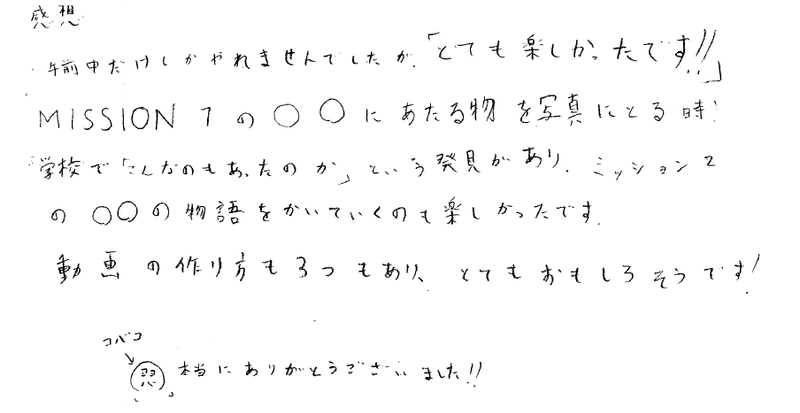 感想
午前中だけしかやれませんでしたが、「とても楽しかったです!!」
MISSION 1の○○にあたる物を写真にとる時!
学校で「こんなのもあったのか」という発見があり、ミッション2
の○○の物語をかいていくのも楽しかったです。
動画の作り方も3つもあり、とてもおもしろそうです!
コバコ
本当にありがとうございました!!